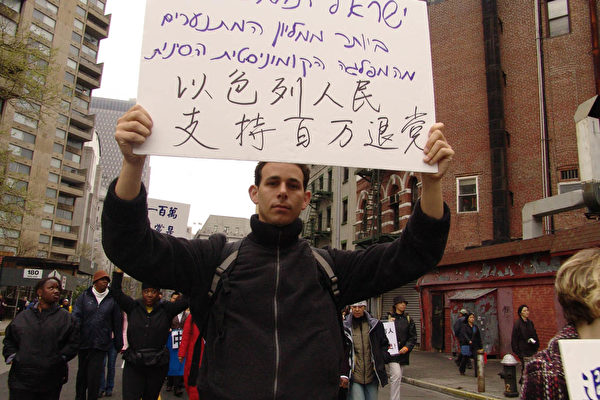 ישראל
ביותר ממליון המתנערים
מהמפלגה הקומוניסטית הסינית
以色列人民
支持百万退党
一百萬
180
退